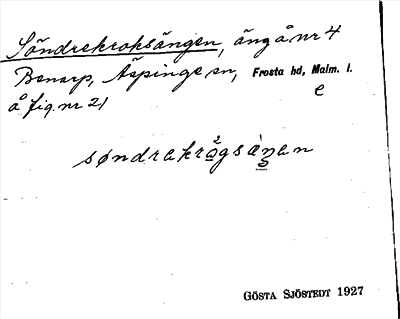 Söndrekroksängen, äng å nr 4
Benarp, Äspinge sn, Frosta hd, Malm. l.
å fig. nr 21 e
søndrekrågsàŋen
GÖSTA SJÖSTEDT 1927